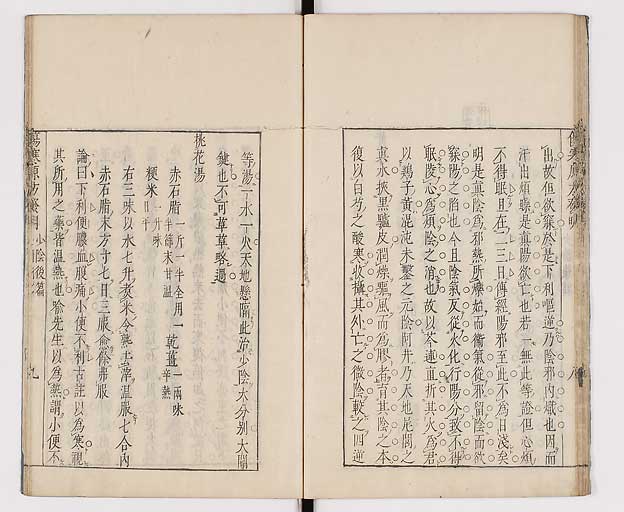 出故但欲寐於是下利嘔逆乃陰邪內熾也因而
汗出煩躁是真陽欲亡也若一無此等證但心煩
不得眠且在二三日傳經陽邪至此不為日淺矣
明是真陰為邪熱所爍如而衛氣從邪留陰而欲
寐陽之陷也今且陰氣反從火化行陽分致不得
眠陵心為煩陰之消也故以芩連直折其火為君
以鷄子黃混沌未鑿之元陰阿井乃天地尾閭之
真水挾黑驢皮潤燥驅風而為膠者育其陰之本
復以白芍之酸寒收攝其外亡之微陰較之四逆
等湯一水一火天地懸隔此治少陰大分別大關
鍵也不可草草略過
桃花湯
赤石脂一斤一半全用一半篩末甘溫 乾薑一兩味辛熱
粳米一升味甘平
右三味以水七升煮米令熟去滓溫服七合內
赤石脂末方寸七日三服愈餘弗服
論曰下利便膿血腹痛小便不利古註以為寒觀
其所用之藥皆溫熱也喻先生以為熱謂小便不
少陰後篇
九